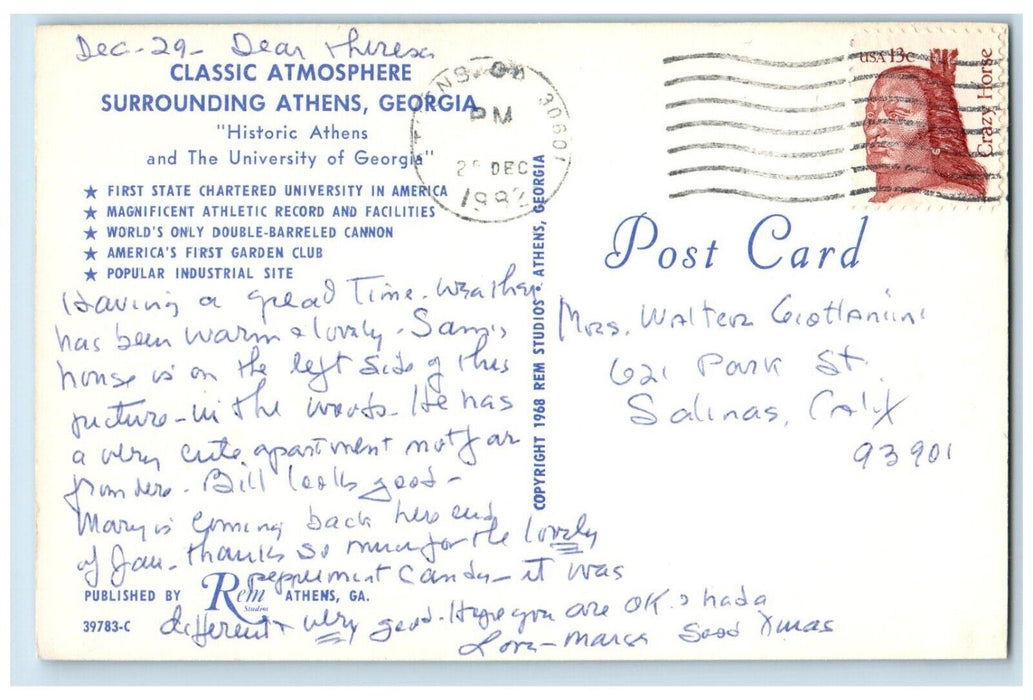 Dec-29- Dear Theresa
CLASSIC ATMOSPHERE
SURROUNDING ATHENS, GEORGIA
"Historic Athens
and The University of Georgia"
★ FIRST STATE CHARTERED UNIVERSITY IN AMERICA
★ MAGNIFICENT ATHLETIC RECORD AND FACILITIES
★ WORLD'S ONLY DOUBLE-BARRELED CANNON
★ AMERICA'S FIRST GARDEN CLUB
★ POPULAR INDUSTRIAL SITE
Having a great Time. Weather
has been warm & lovely. Sam's
house is on the left side of this
picture - in the woods. He has
a very cute apartment not far
from here. Bill looks good -
Mary is coming back here end
of Jan. thanks so much for the lovely
peppermint candy - it was
different & very good. Hope you are OK & had a
good Xmas
Love -
PUBLISHED BY Rem Studios ATHENS, GA.
39783-C
COPYRIGHT 1968 REM STUDIOS • ATHENS, GEORGIA
30601
PM
DEC
1982
USA 13c
Crazy Horse
Post Card
Mrs. Walter
621 Park St.
Salinas, Calif
93901